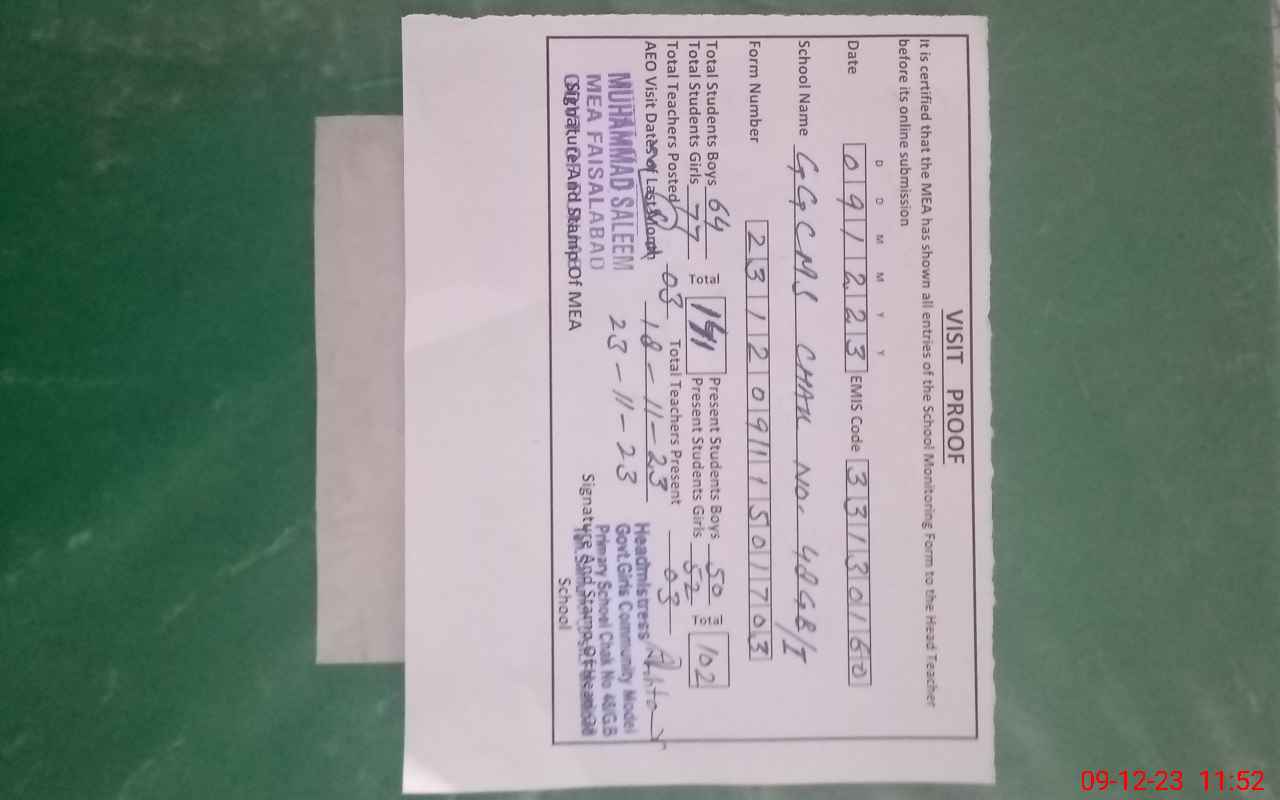 VISIT PROOF
It is certified that the MEA has shown all entries of the School Monitoring Form to the Head Teacher
before its online submission
D D M M Y Y
Date 091223 EMIS Code 33130160
School Name GGCMS CHAK NO. 48GB/I
Form Number 23120911501703
Total Students Boys 64 Present Students Boys 50
Total Students Girls 77 141 Present Students Girls 52 102
Total Teachers Posted 03 Total Teachers Present 03
AEO Visit Dates of Last Month 18-11-23
23-11-23
MUHAMMAD SALEEM
MEA FAISALABAD
Signature And Stamp Of MEA
Headmistress
Govt. Girls Community Model
Primary School Chak No 48/G.B
Signature And Stamp Of Head
School
09-12-23 11:52